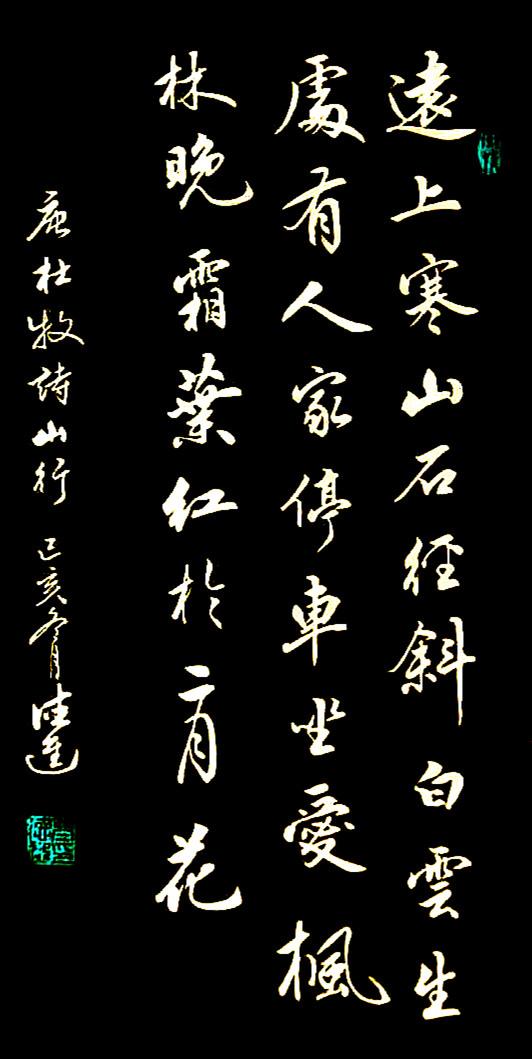 遠上寒山石徑斜白雲生
處有人家停車坐愛楓
林晚霜葉紅於二月花
唐杜牧詩山行 己亥冬月